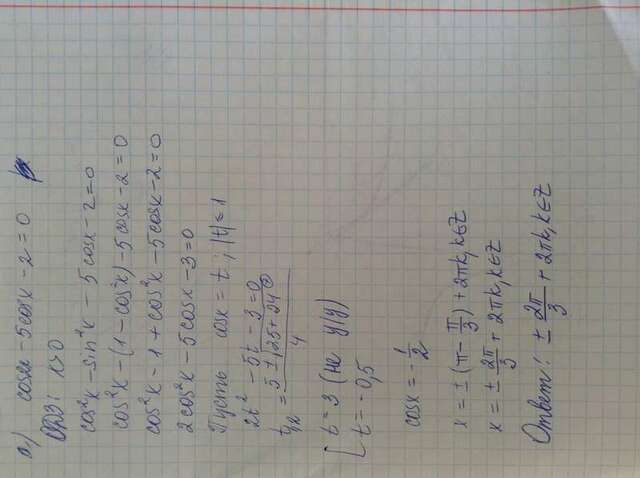 а) cos2x - 5cosx - 2 = 0
ОДЗ: x>0
cos²x - sin²x - 5cosx - 2 = 0
cos²x - (1 - cos²x) - 5cosx - 2 = 0
cos²x - 1 + cos²x - 5cosx - 2 = 0
2cos²x - 5cosx - 3 = 0
Пусть cosx = t, |t| ≤ 1
2t² - 5t - 3 = 0
t = (5 ± √(25 + 24))/4
[ t = 3 (не уд)
t = -0,5
cosx = -1/2
x = ±(π - π/3) + 2πk, k∈Z
x = ± 2π/3 + 2πk, k∈Z
Ответ: ± 2π/3 + 2πk, k∈Z